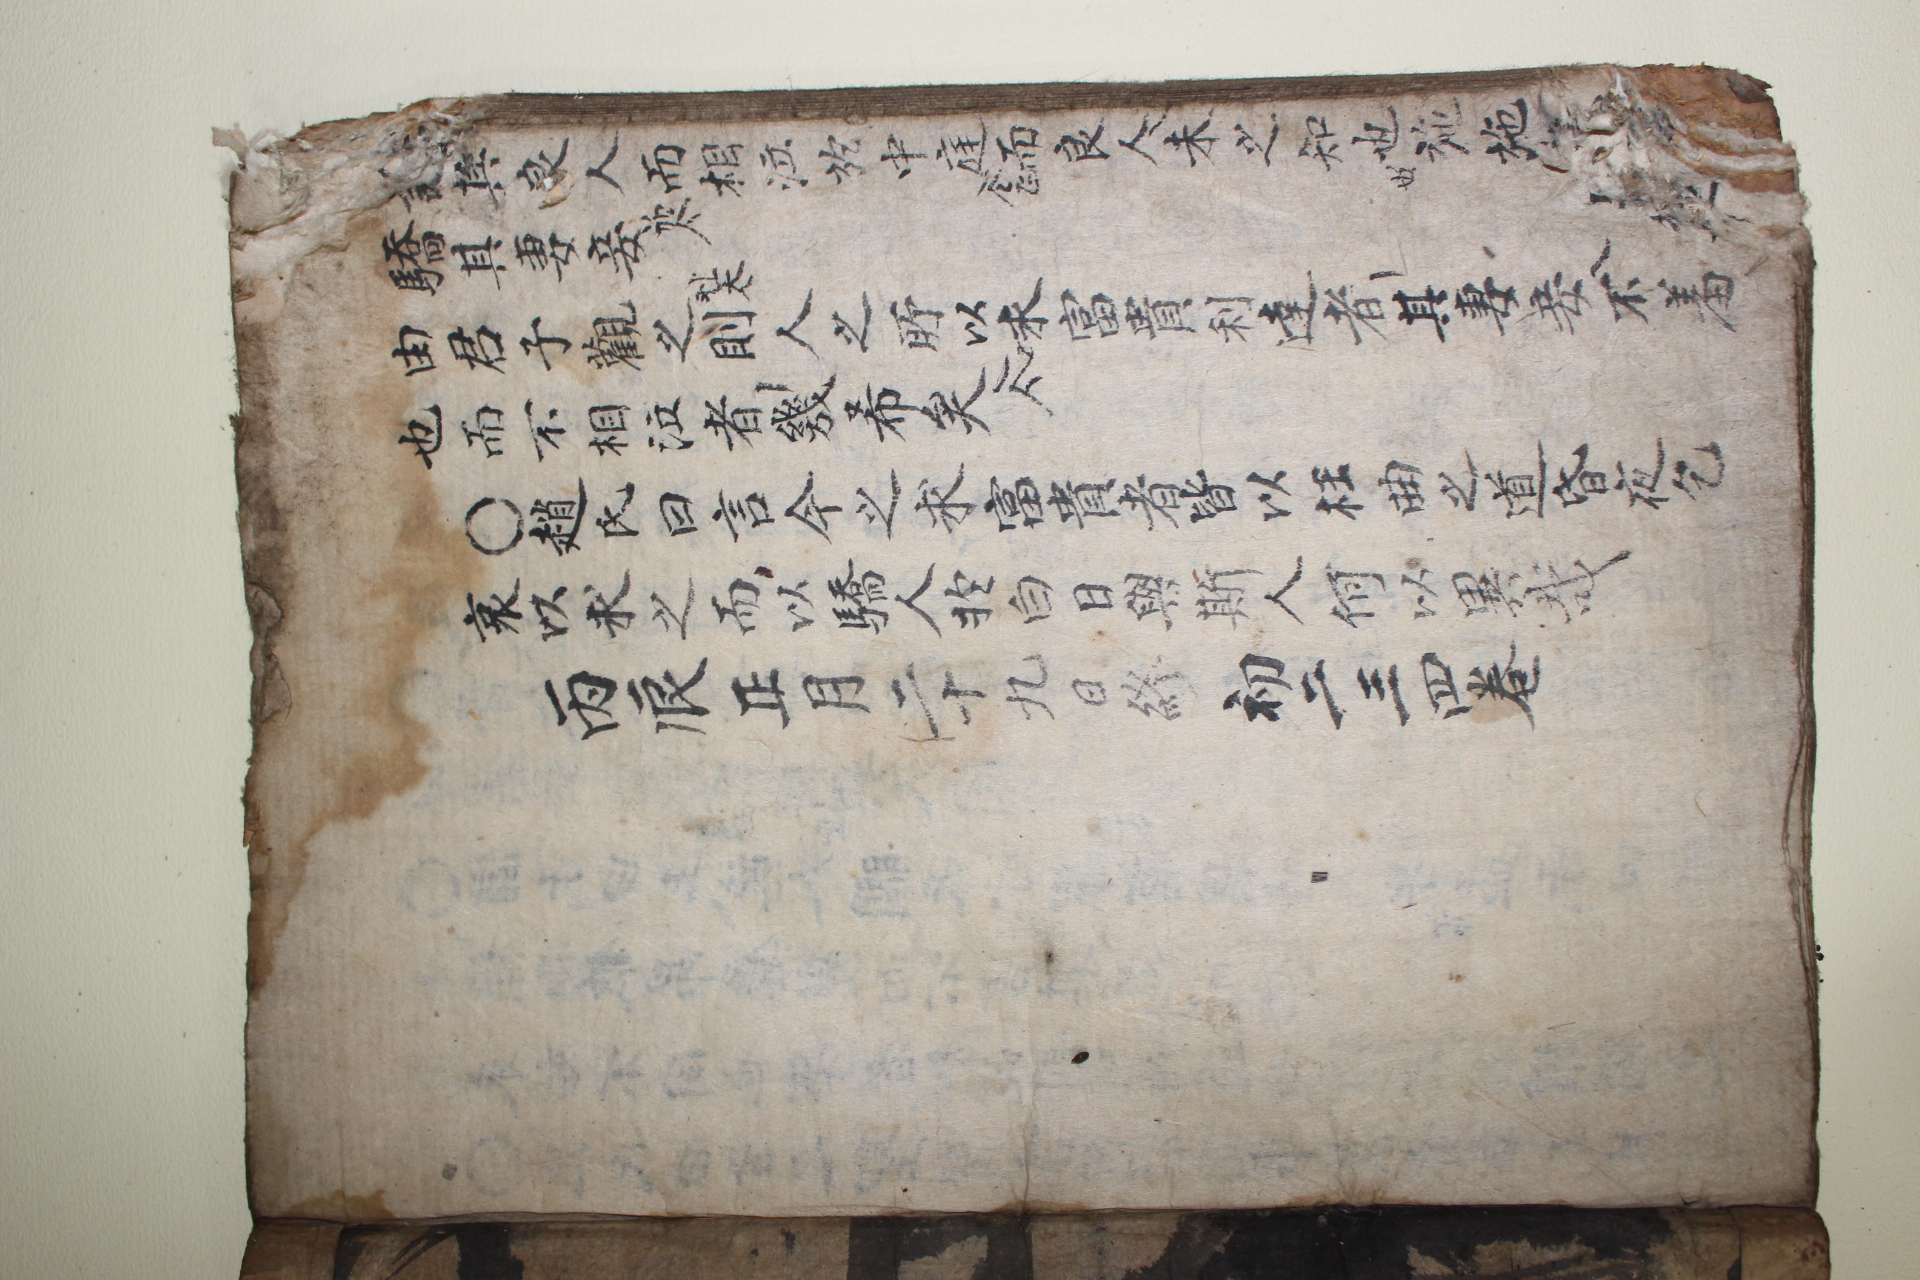 其良人而相泣於中庭而良人未之知也施施
驕其妻妾
由君子觀之則人之所以求富貴利達者其妻妾不羞
也而不相泣者幾希矣
○趙氏曰言今之求富貴者皆以枉曲之道昏夜乞
哀以求之而以驕人於白日與斯人何以異哉
丙辰正月二十九日終 初二三四卷